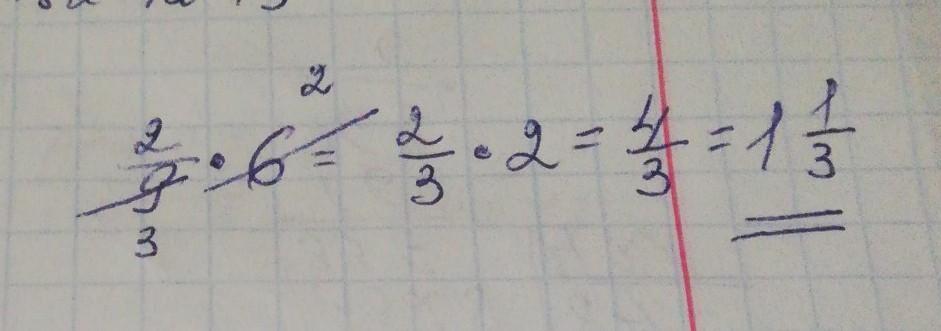 2/9 · 6 = 2/3 · 2 = 4/3 = 1 1/3
2
3